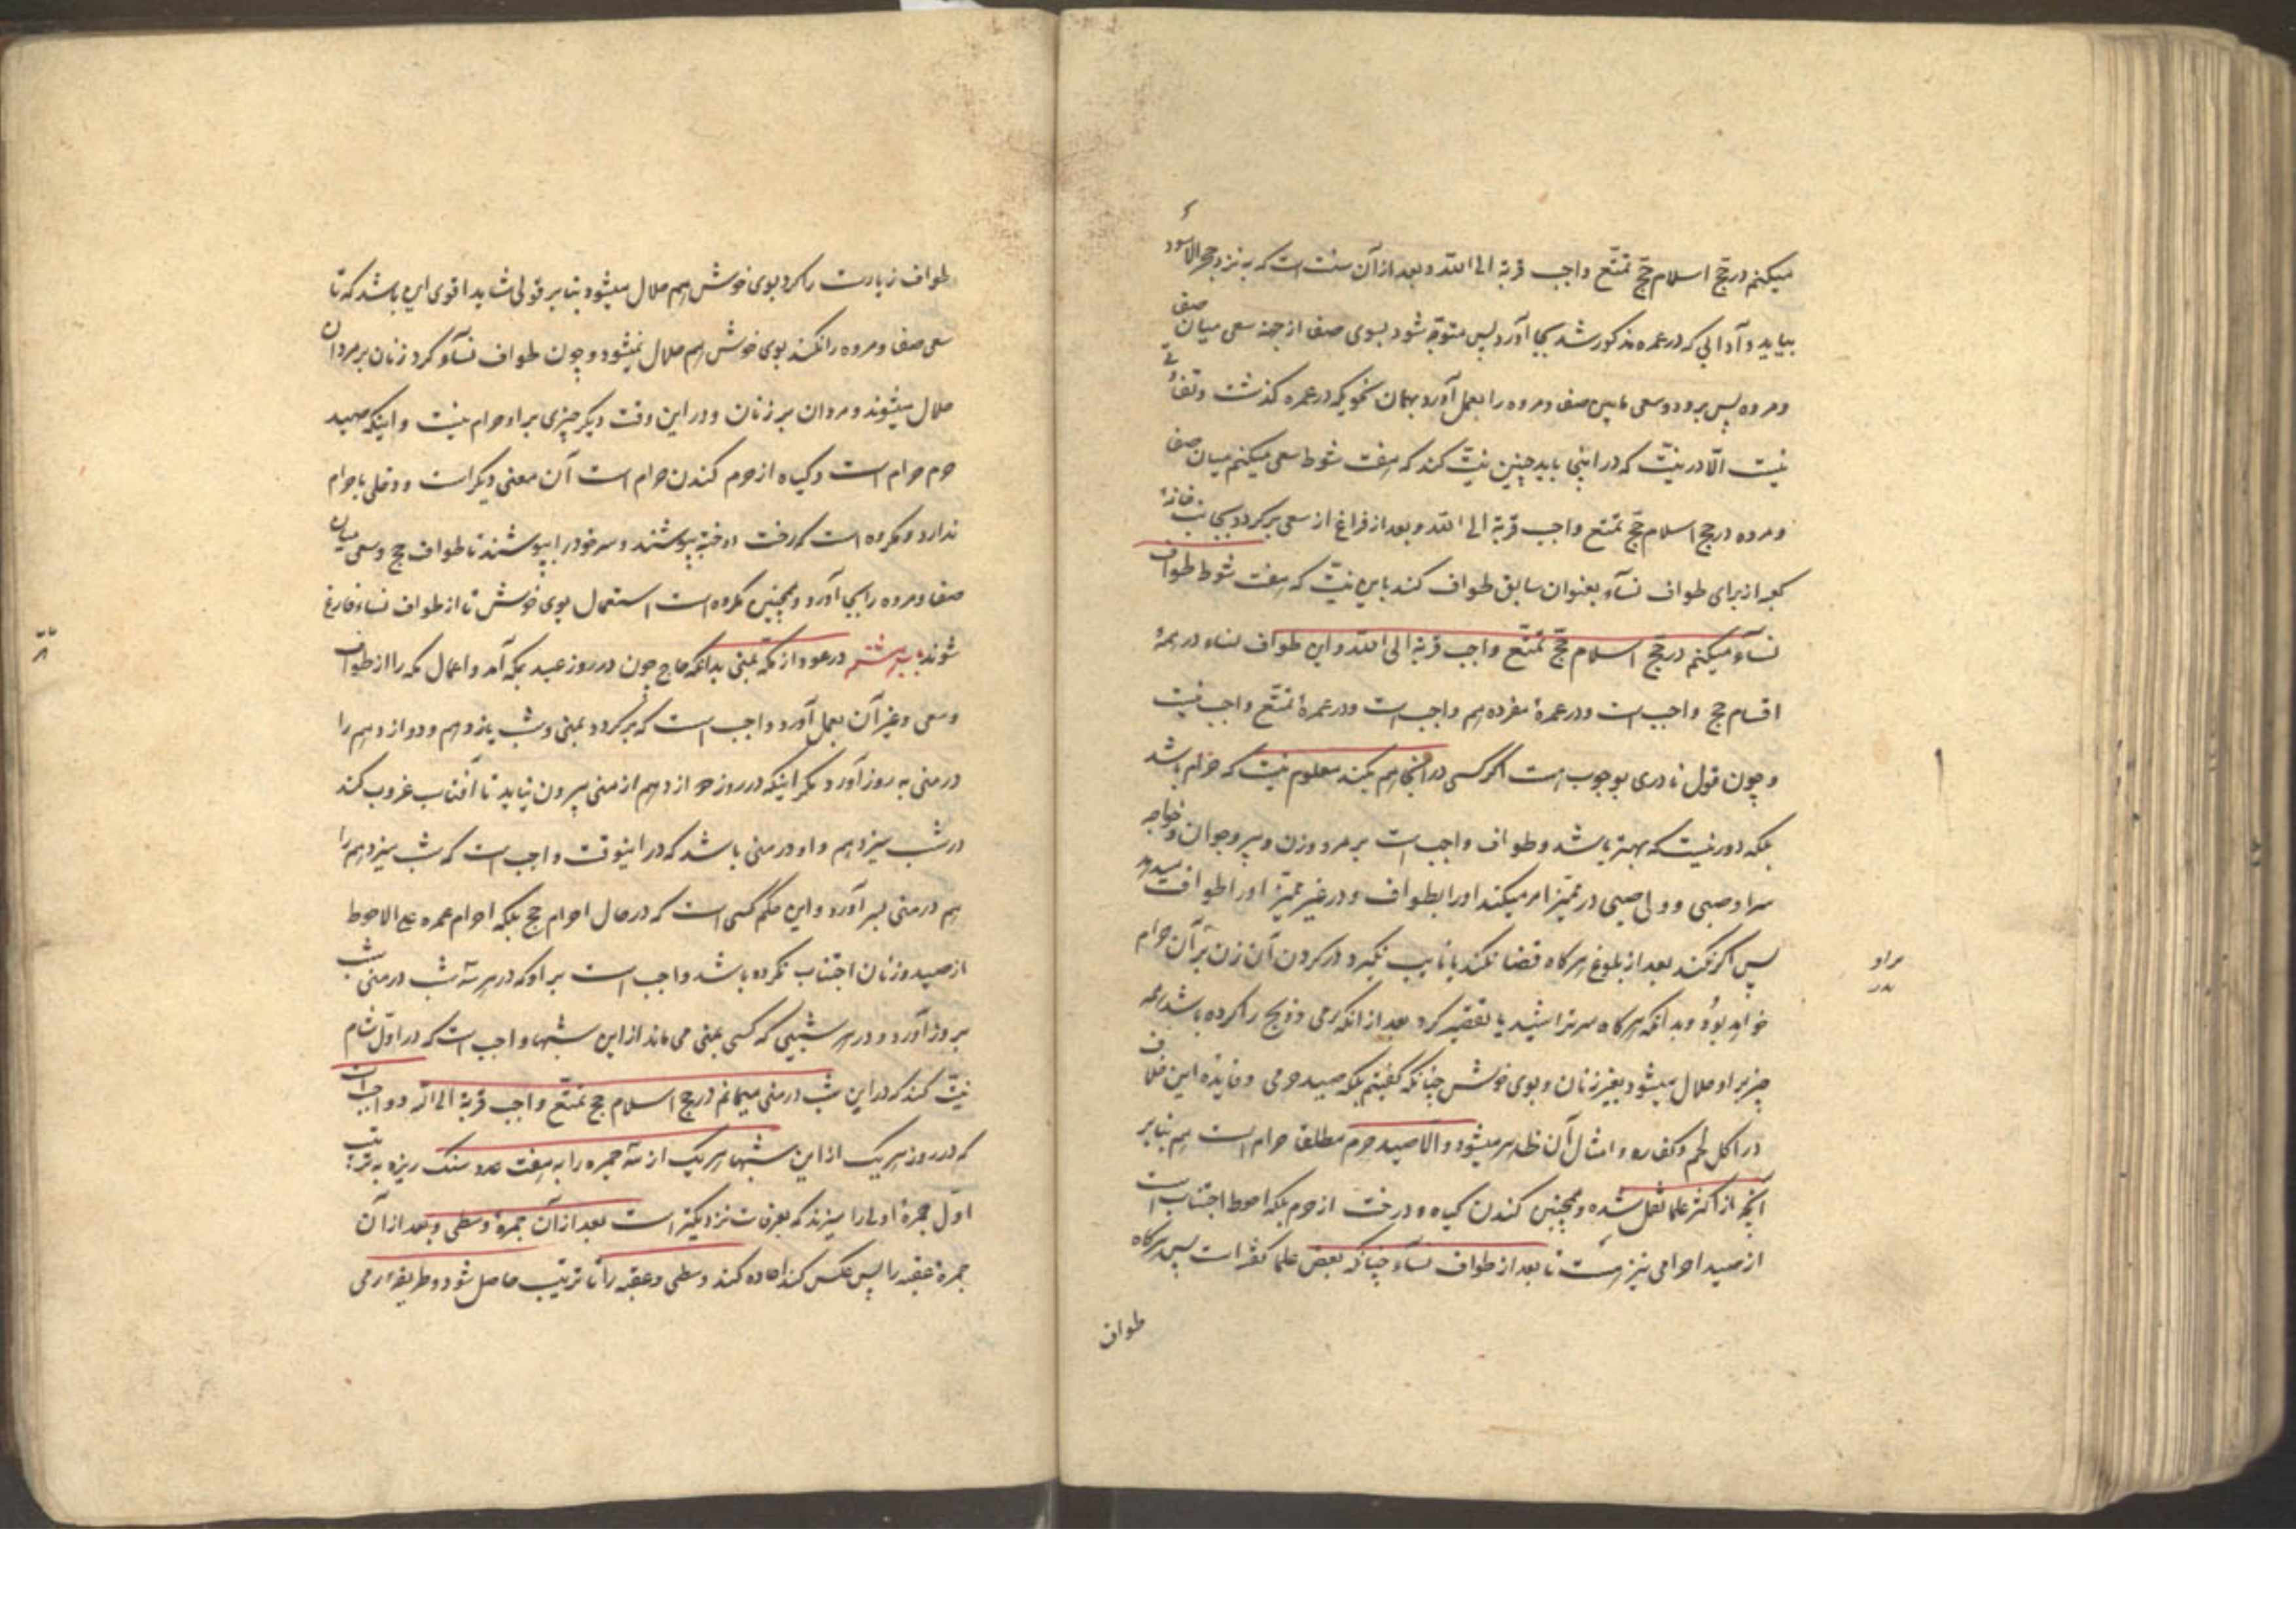 میکنم در حج اسلام حج تمتع واجب قربة الی الله و بعد از آن سنت است که به نزد حجرالاسود
بیاید و آدابی که در عمره مذکور شد بجا آورد پس متوجه شود بسوی صفا از جهة سعی میان صفا
و مروه پس برود و سعی مابین صفا و مروه را بعمل آورد بهمان نحویکه در عمره کذشت و تفاوتی
نیست الّا در نیّت که در اینجا باید چنین نیّت کند که هفت شوط سعی میکنم میان صفا
و مروه در حج اسلام حجّ تمتع واجب قربة الی الله و بعد از فراغ از سعی برکردد بجانب خانهٔ
کعبه از برای طواف نسآء بعنوان سابق طواف کند باین نیّت که هفت شوط طواف
نسآء میکنم در حجّ اسلام حجّ تمتّع واجب قربة الی الله و این طواف نساء در همهٔ
اقسام حج واجب است و در عمرهٔ مفرده هم واجب است و در عمرهٔ تمتّع واجب نیست
و چون قول نادری بوجوب هست اکر کسی در آنجا هم بکند معلوم نیست که حرام باشد
بلکه دور نیست که بهتر باشد و طواف واجب است بر مرد و زن و پیر و جوان و خواجه
سرا و صبی و ولی صبی در ممیّز امر میکند او را بطواف و در غیر ممیّز او را طواف میدهد
پس اکر نکند بعد از بلوغ هرکاه قضا نکند یا نایب نکیرد در کردن آن زن بر آن حرام
خواهد بود و بدانکه هرکاه سر تراشید یا تقصیر کرد بعد از انکه رمی و ذبح را کرده باشد همه
چیز بر او حلال میشود بغیر زنان و بوی خوش چنانکه کفتیم بلکه صید حرمی و فایدهٔ این خلاف
در اکل لحم و کفاره و امثال آن ظاهر میشود و الّا صید حرم مطلقا حرام است هم بنابر
آنچه از اکثر علما نقل شده و همچنین کندن کیاه و درخت از حرم بلکه احوط اجتناب است
از صید احرامی نیز هست تا بعد از طواف نسآء چنانکه بعض علما کفته است پس هرکاه
طواف
مراو
طواف زیارت را کرد بوی خوش هم حلال میشود بنابر قولی شاید اقوی این باشد که تا
سعی صفا و مروه را نکند بوی خوش هم حلال نمیشود و چون طواف نسآء کرد زنان بر مردان
حلال میشوند و مردان بر زنان و در این وقت دیکر چیزی بر او حرام نیست و اینکه صید
حرم حرام است و کیاه از حرم کندن حرام است آن معنی دیکر است و دخلی باحرام
ندارد و مکروه است که رخت دوخته بپوشند و سر خود را بپوشند تا طواف حج و سعی میان
صفا و مروه را بجا آورد و همچنین مکروه است استعمال بوی خوش تا از طواف نساء فارغ
شوند در عود از مکه بمنی بدانکه حاج چون در روز عید بمکه آمد و اعمال مکه را از طواف
و سعی و غیر آن بعمل آورد واجب است که برکردد بمنی و شب یازدهم و دوازدهم را
در منی به روز آورد مکر اینکه در روز دوازدهم از منی بیرون نیاید تا آفتاب غروب کند
در شب سیزدهم و او در منی باشد که در اینوقت واجب است که شب سیزدهم را
هم در منی بسر آورد و این حکم کسی است که در حال احرام حج بلکه احرام عمره علی الاحوط
از صید و زنان اجتناب نکرده باشد واجب است بر او که در هر سه شب در منی شب
بروز آورد و در هر شبی که کسی بمنی می ماند از این شبها واجب است که در اوّل شام
نیّت کند که در این شب در منی میمانم در حج اسلام حج تمتّع واجب قربة الی الله و واجب است
که در روز هر یک از این شبها هر یک از سه جمره را به هفت عدد سنک ریزه به ترتیب
اوّل جمرهٔ اولی را میزند که بعرفات نزدیکتر است بعد از آن جمرهٔ وسطی و بعد از آن
جمرهٔ عقبه را پس عکس کند اعاده کند وسطی و عقبه را تا ترتیب حاصل شود و طریقهٔ رمی